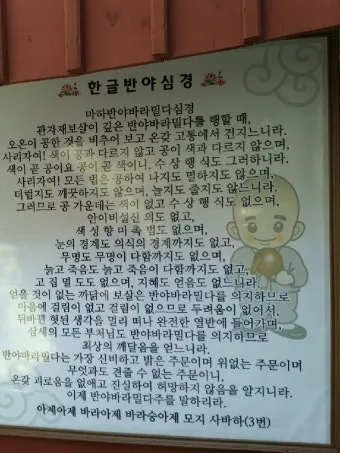 한글반야심경
마하반야바라밀다심경
관자재보살이 깊은 반야바라밀다를 행할 때,
오온이 공한 것을 비추어 보고 온갖 고통에서 건지느니라.
사리자여! 색이 공과 다르지 않고 공이 색과 다르지 않으며,
색이 곧 공이요 공이 곧 색이니, 수 상 행 식도 그러하니라.
사리자여! 모든 법은 공하여 나지도 멸하지도 않으며,
더럽지도 깨끗하지도 않으며, 늘지도 줄지도 않느니라.
그러므로 공 가운데는 색이 없고 수 상 행 식도 없으며,
안이비설신 의도 없고,
색 성 향 미 촉 법도 없으며,
눈의 경계도 의식의 경계까지도 없고,
무명도 무명이 다함까지도 없으며,
늙고 죽음도 늙고 죽음이 다함까지도 없고,
고 집 멸 도도 없으며, 지혜도 얻음도 없느니라.
얻을 것이 없는 까닭에 보살은 반야바라밀다를 의지하므로
마음에 걸림이 없고 걸림이 없으므로 두려움이 없어서,
뒤바뀐 헛된 생각을 멀리 떠나 완전한 열반에 들어가며,
삼세의 모든 부처님도 반야바라밀다를 의지하므로
최상의 깨달음을 얻느니라.
반야바라밀다는 가장 신비하고 밝은 주문이며 위없는 주문이며
무엇과도 견줄 수 없는 주문이니,
온갖 괴로움을 없애고 진실하여 허망하지 않음을 알지니라.
이제 반야바라밀다주를 말하리라.
아제아제 바라아제 바라승아제 모지 사바하(3번)